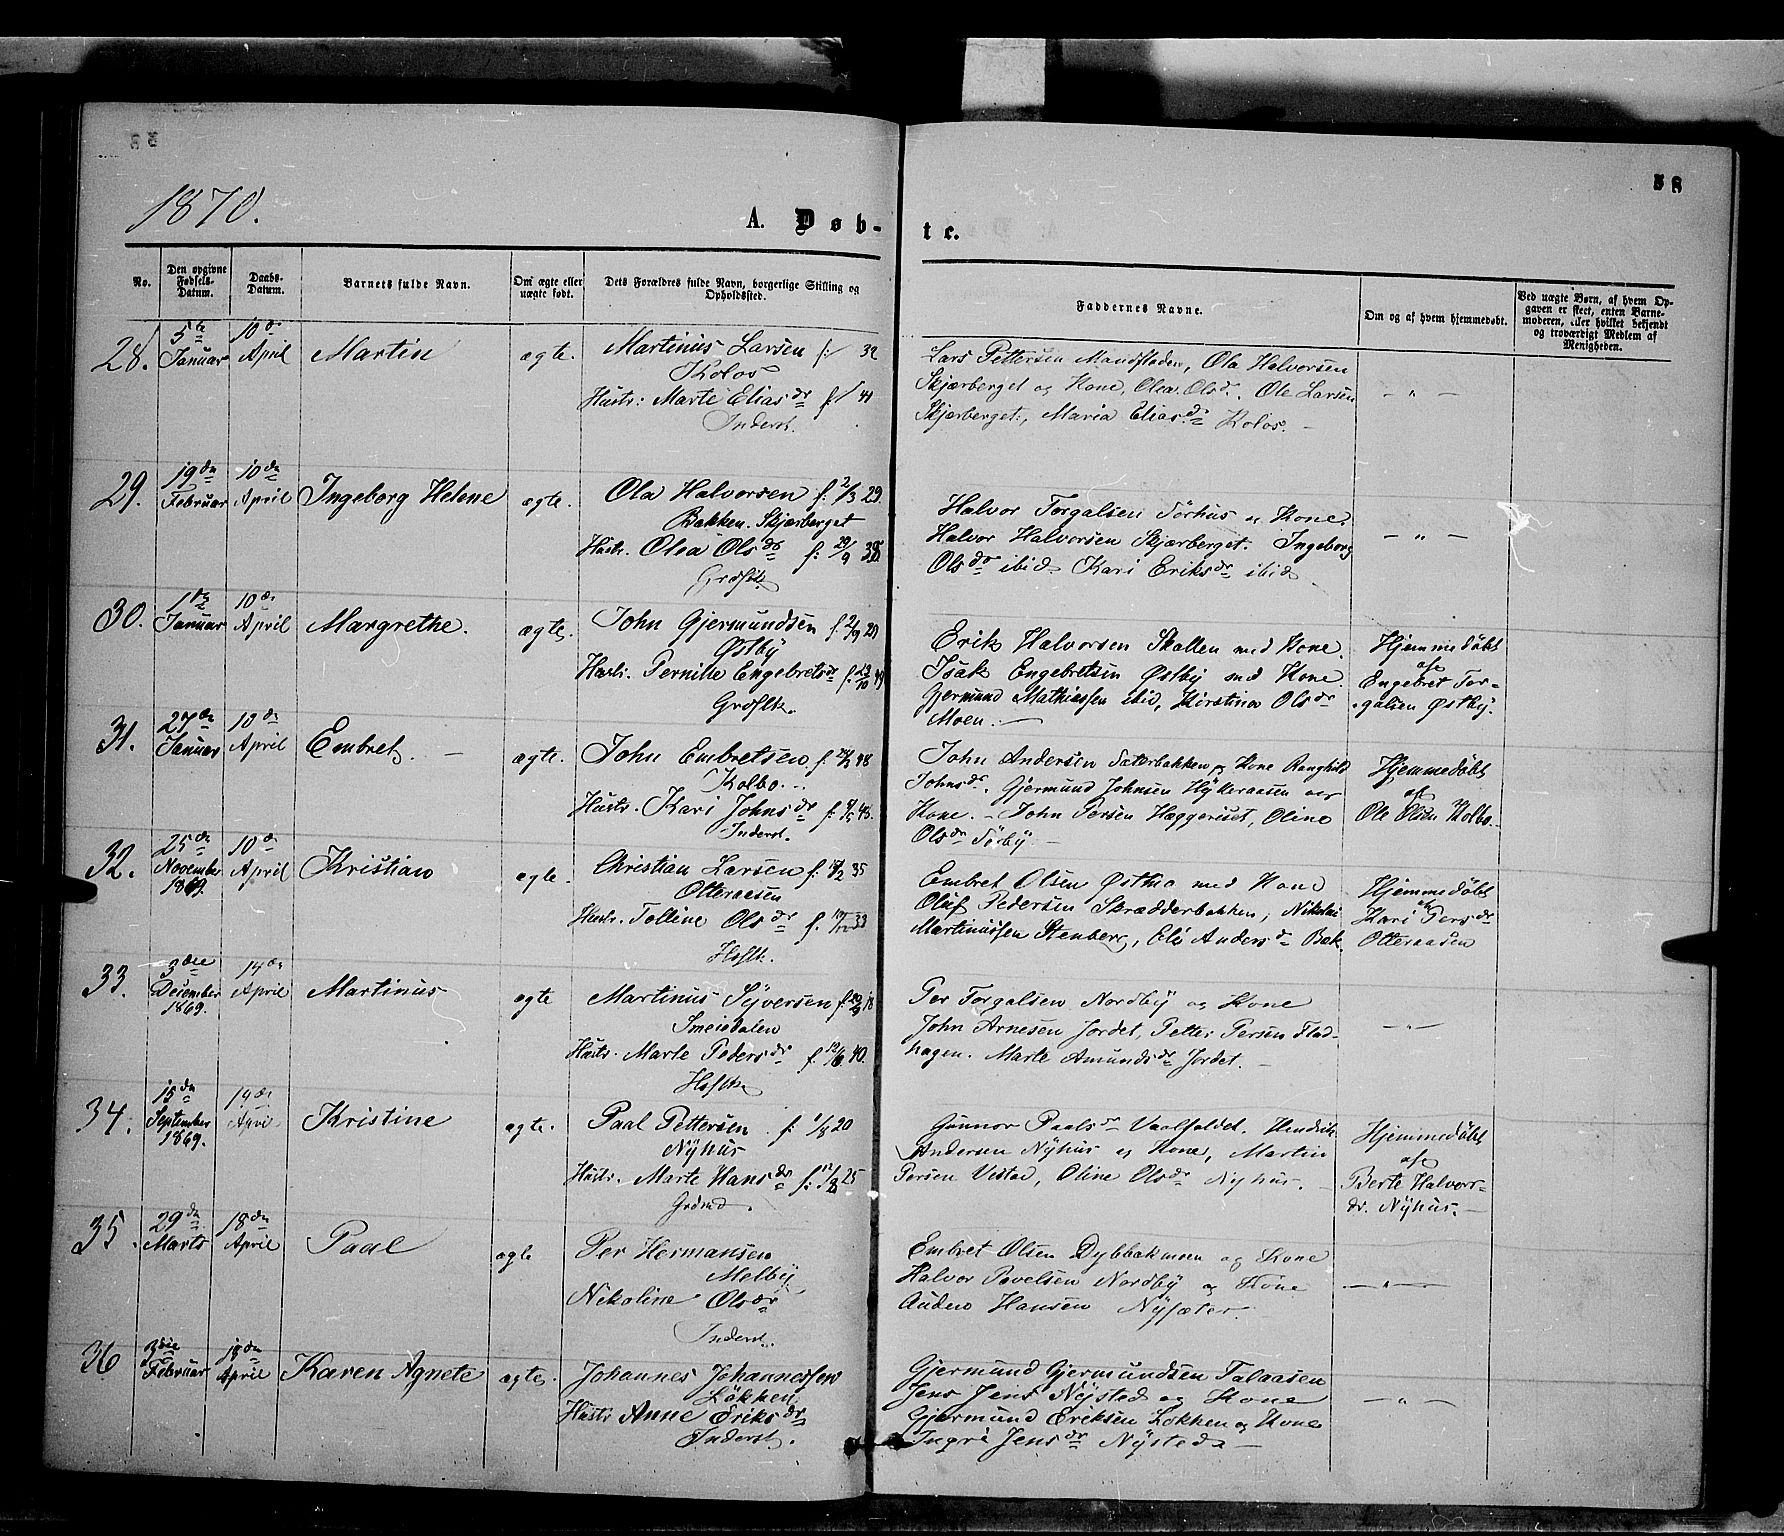 58
1870.
A. Døb-
te.
No.
Den opgivne Fødsels-Datum.
Daabs-Datum.
Barnets fulde Navn.
Om ægte eller uægte født.
Dets Forældres fulde Navn, borgerlige Stilling og Opholdssted.
Faddernes Navne.
Om og af hvem hjemmedøbt.
Ved uægte Børn, af hvem Opgaven er skeet, enten Barnemoderen, eller hvilket bekjendt og troværdigt Medlem af Menigheden.
28. 5te Januar 10de April Martin ægte.
Martinus Larsen f: 32
Kolos
Hustr: Marte Eliasdr f: 41
Inderst.
Lars Pettersen, Ola Halvorsen
Skjærberget og Kone, Olea Olsdr. Ole Larsen
Skjærberget, Maria Eliasdr Kolos. —
— " —
29. 19de Februar 10de April Ingeborg Helene ægte.
Ola Halvorsen f. 2/3 29.
Bakken. Skjærberget
Hustr. Olea Olsdr f: 29/9
Halvor Torgalsen Törhus og Kone.
Halvor Halvorsen Skjærberget. Ingeborg
Olsdr ibid. Kari Eriksdr ibid.
— " —
30. 1ste Januar 10de April Margrethe. ægte.
John Gjermundsen
Østby
Hustr. Pernille Engebretsdr
Erik Halvorsen Skallen med Kone.
Isak Engebretsen Østby med Kone
Gjermund Mathiassen ibid, Kirstina Olsdr
Moen. —
Hjemmedøbt
af
Engebret Tor-
galsen Østby.
31. 27de Januar 10de April Embret. — ægte.
John Embretsen f. 48
Kolbo.
Hustr. Kari Johnsdr f: 45.
Inderst.
John Andersen Sæterbakken og Kone Ranghild
Johnsdr. Gjermund Johnsen og
Kone. — John Persen Haggeriset, Oline
Olsdr Törby. —
Hjemmedøbt
af
Ole Olsen Kolbo.
32. 25de November 1869. 10de April Kristian ægte.
Christian Larsen f: 35
Otteraasen
Hustr. Tolline Olsdr f. 33
Embret Olsen med Kone
Oluf Pedersen Skrædderbakken, Nikolai
Martinussen Stenberg, Eli Andersdr Bak.
Hjemmedøbt
af
Kari Persdr
Otteraasen
33. 3die December 1869. 14de April Martinus ægte
Martinus Syversen
Smeiedalen
Hustr. Marte Pedersdr f. 12/6 40.
Per Torgalsen Nordby og Kone
John Arnesen Jordet, Petter Persen Flad-
hagen. Marte Amundsdr Jordet. —
— " —
34. 15de September 1869. Kristine ægte.
Paal Pettersen f: 1/8 20
Nyhus
Hustr. Marte Hansdr 25
Gunnor Paalsdr. Hendrik
Andersen Nyhus og Kone, Martin
Persen Vestad, Oline Olsdr Nyhus. —
Hjemmedøbt
af
Berte Halvors-
dr. Nyhus. —
35. 29de Marts 18de April Paal ægte
Per Hermansen
Melby
Nikoline Olsdr
Inderst.
Embret Olsen Dybbakmoen og Kone
Halvor Povelsen Nordby og Kone
Anders Hansen Nysæter.
— " —
36 3die Februar 18de April Karen Agnete ægte.
Johannes Johannessen
Løkken
Hustr Anne Eriksdr
Inderst.
Gjermund Gjermundsen Talaasen
Jens Jens Nysted og Kone
Gjermund Eriksen Løkken og Kone
Ingri Jensdr Nysted. —
— " —